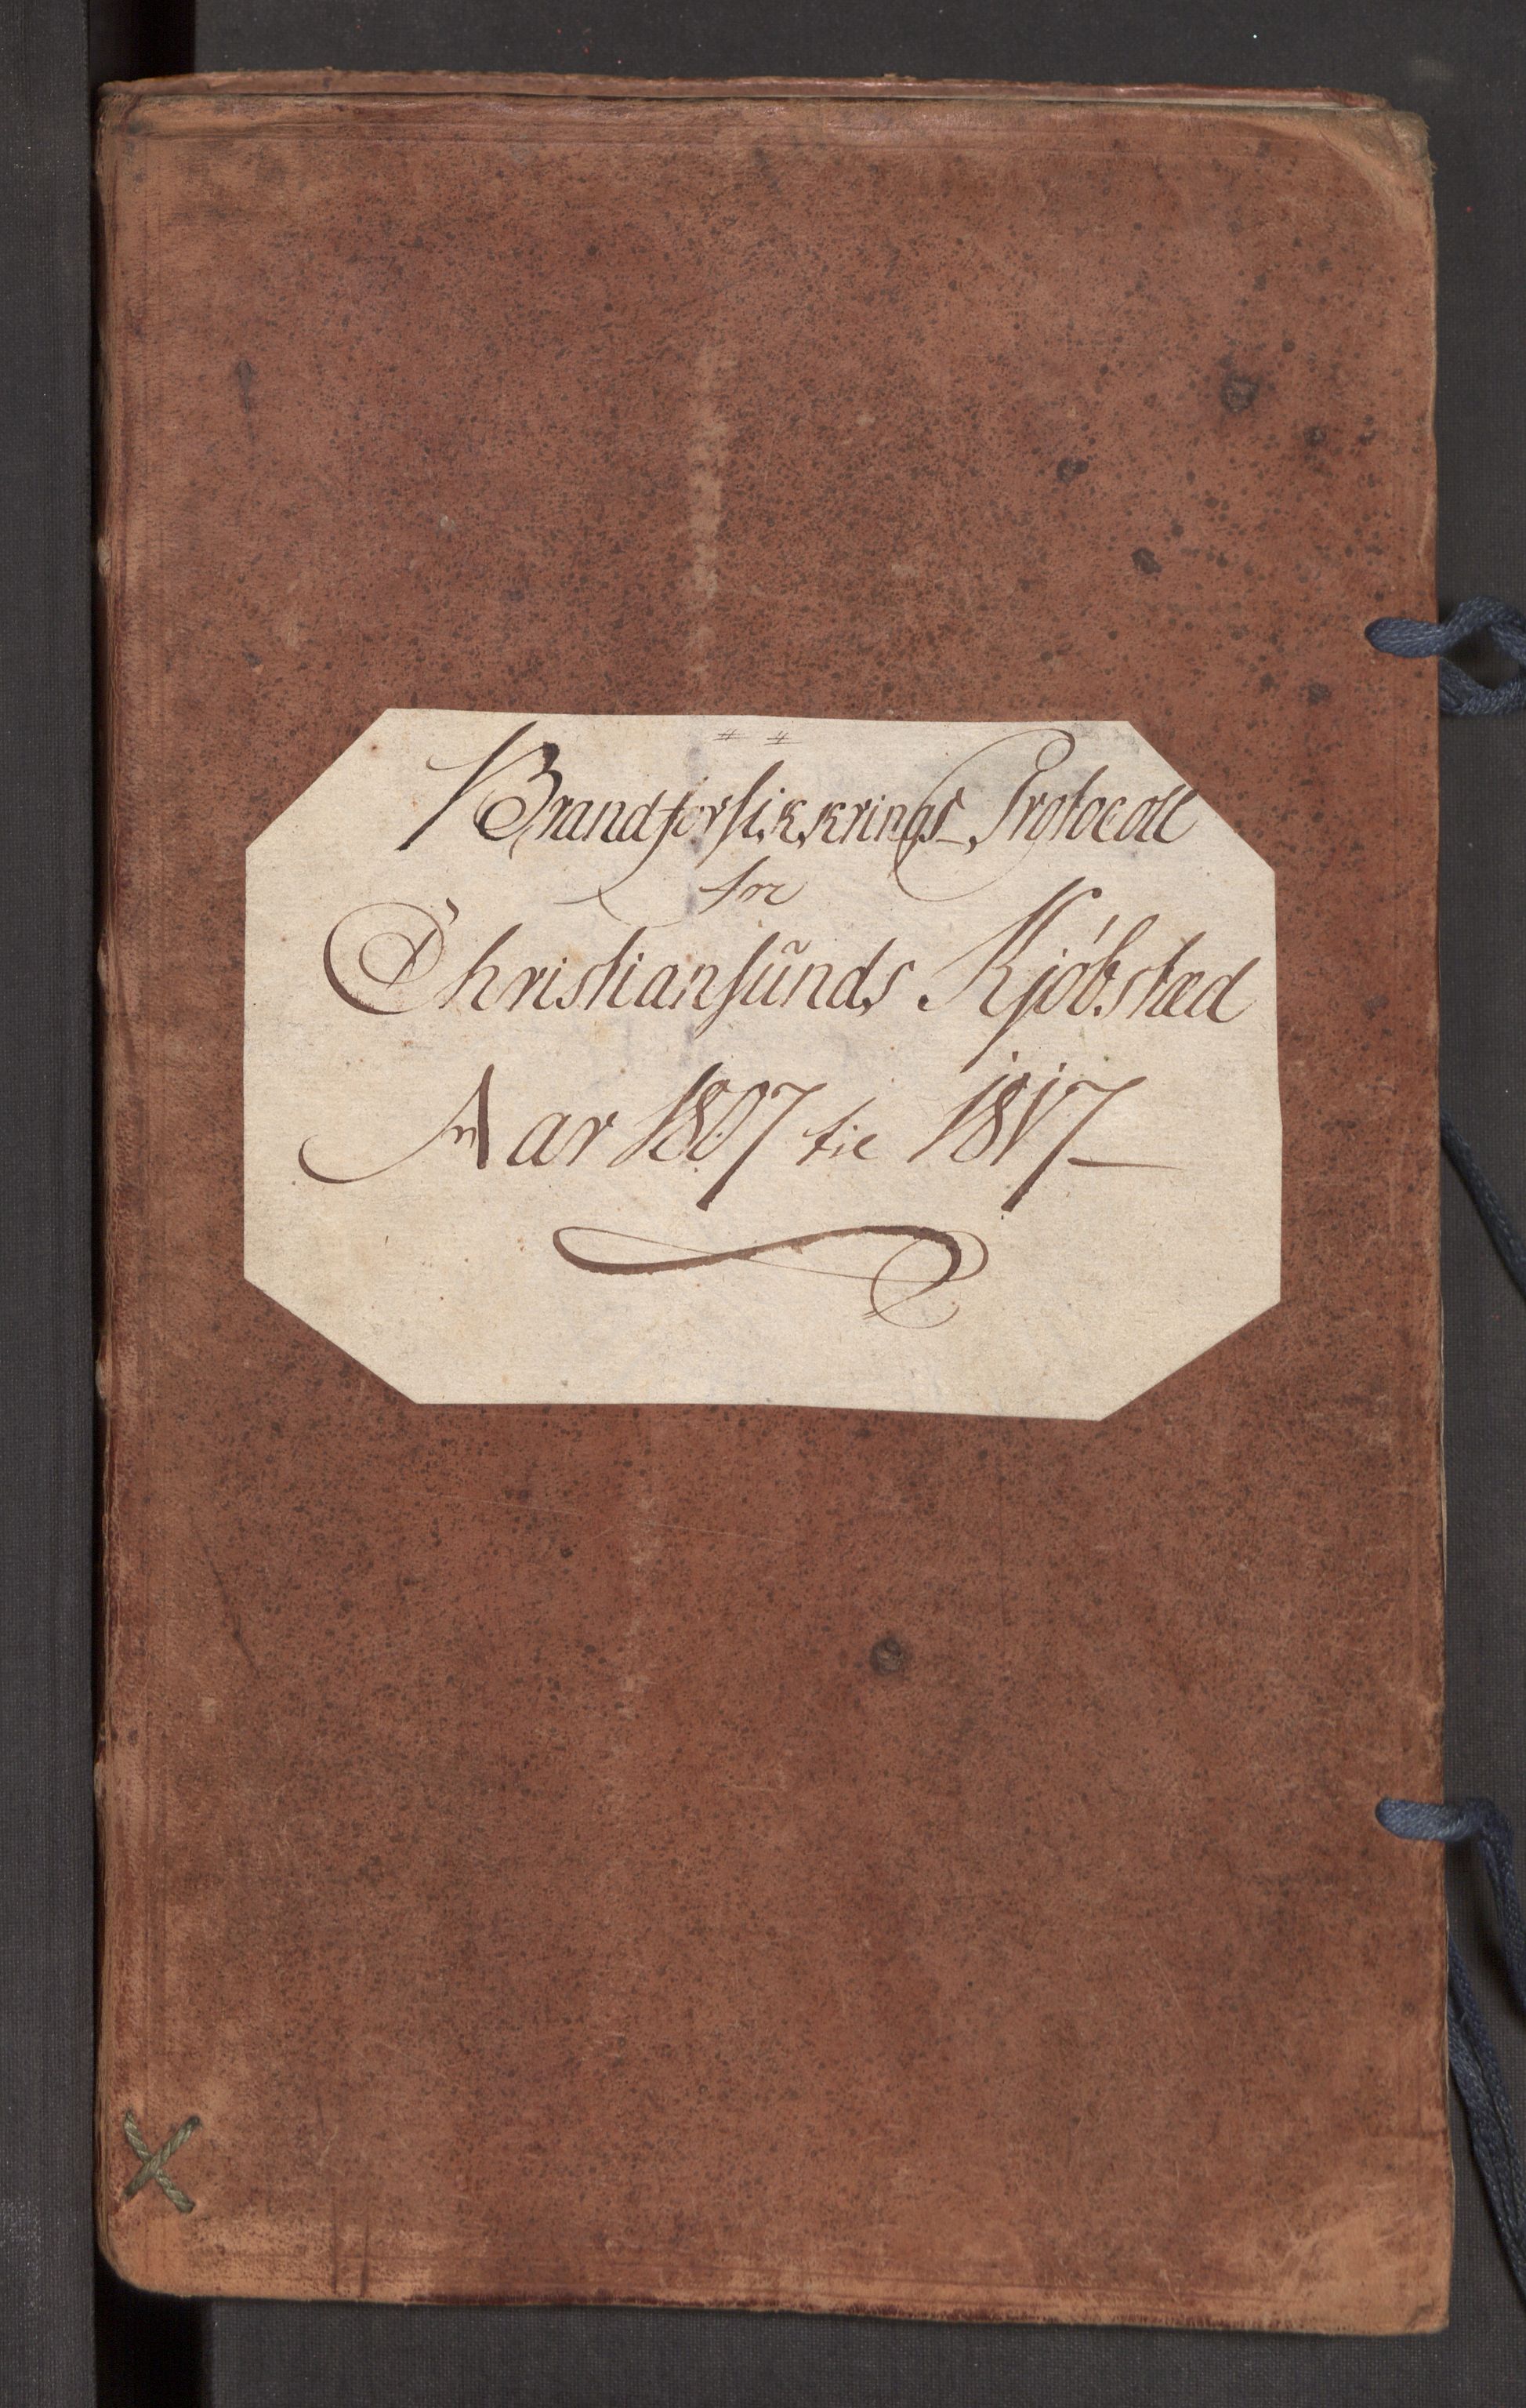 Brandforsikkrings Protocoll
for
Christiansunds Kjöbsted
Aar 1807 til 1817